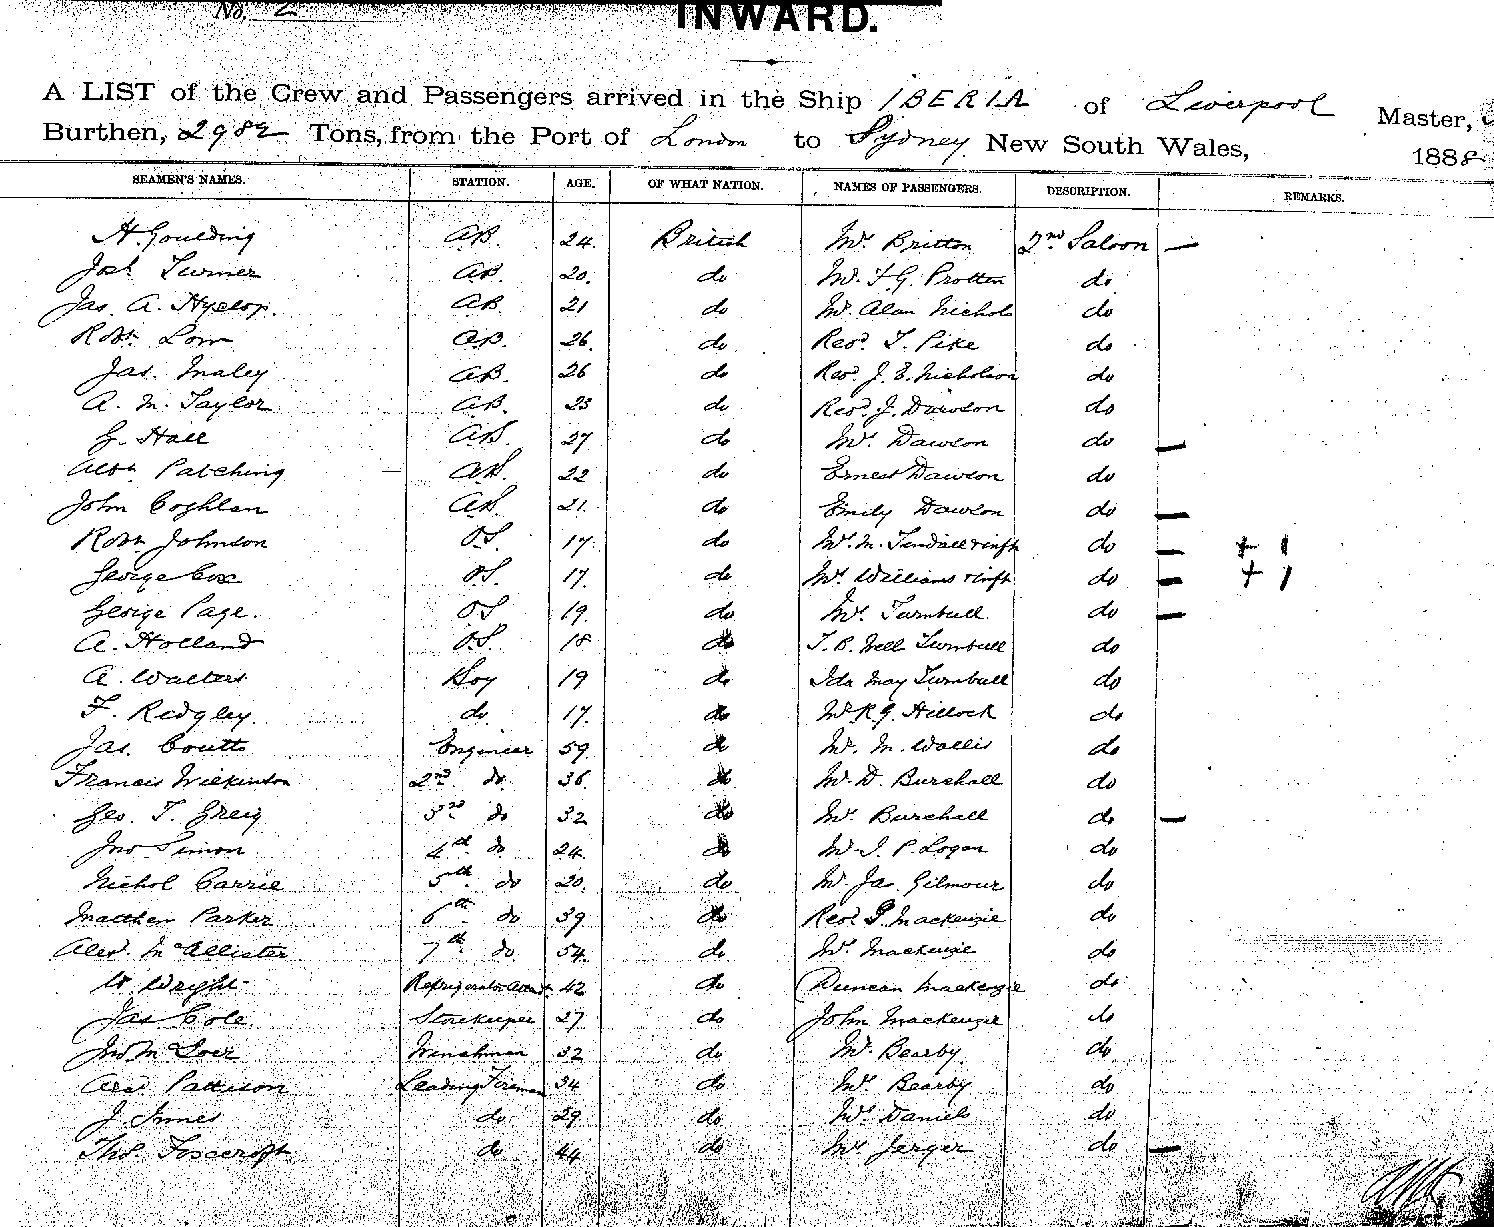 No. 2
INWARD.
A LIST of the Crew and Passengers arrived in the Ship IBERIA of Liverpool Master,
Burthen, 2982 Tons, from the Port of London to Sydney New South Wales, 1888
SEAMEN'S NAMES. STATION. AGE. OF WHAT NATION. NAMES OF PASSENGERS. DESCRIPTION. REMARKS.
H. Goulding AB. 24. British Mrs Britton 2nd Saloon
Josh Turner AB. 20. do Mr. F. G. Protten do
Jas. A. Hyslop. AB 21 do Mr. Alan Nichols do
Robt. Low AB. 26. do Revd. T. Pike do
Jas. Maley AB. 26 do Revd. J. E. Nicholson do
A. M. Taylor AB. 23 do Revd. J. Dawson do
G. Hall AB. 27 do Mrs. Dawson do
Patching AB. 22 do Ernest Dawson do
John Coghlan AB. 21. do Emily Dawson do
Robt Johnson OS. 17. do Mrs. M. Tindall & inft do + 1
George Cox OS. 17. do Mrs Williams & inft do + 1
George Page. OS 19. do Mrs Turnbull do
A. Holland OS. 18 do T. B. Well Turnbull do
A. Walters Boy 19 do Ida May Turnbull do
F. Redgley. do 17. do Mr R G. Hillock do
Jas. Coutts Engineer 59 do Mr. M. Wallis do
Francis Wilkinson 2nd do 36. do Mr. D. Burchall do
Geo. T. Greig 3rd do 32 do Mrs Burchall do
Jno Simon 4th do 24. do Mr J. P. Logan do
Nichol Carrie 5th do 20. do Mr Jas. Gilmour do
Matthew Parker 6th do 39 do Revd P. Mackenzie do
Alexr. McAllister 7th do 54. do Mrs Mackenzie do
W. Wright 42 do Duncan Mackenzie do
Jas Cole Storekeeper 27 do John Mackenzie do
Winchman 32 do Mr. Bearby do
Pattison Leading Fireman 34 do Mrs Bearby do
J. Innes do 29 do Mrs Daniels do
Thos Foxcroft do 44 do Mrs Jerger do